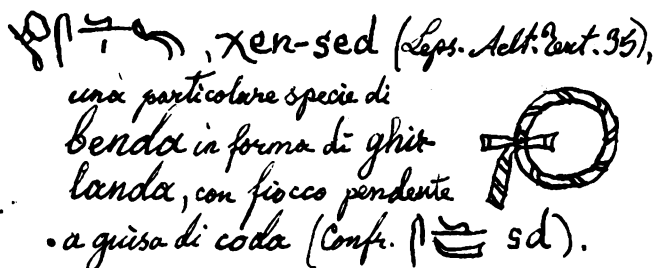 , χen-sed (Leps. Aelt. Text. 35),
una particolare specie di
benda in forma di ghir-
landa, con fiocco pendente
a guisa di coda (Confr. sd).